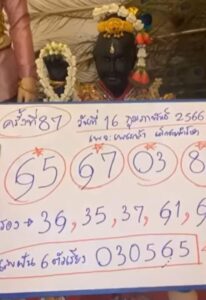 ครั้งที่ 87 วันที่ 16 กุมภาพันธ์ 2566
65 67 03 8
รอง → 36, 35, 37, 61, 6
ฝัน 6 ตัวเรียง 030565